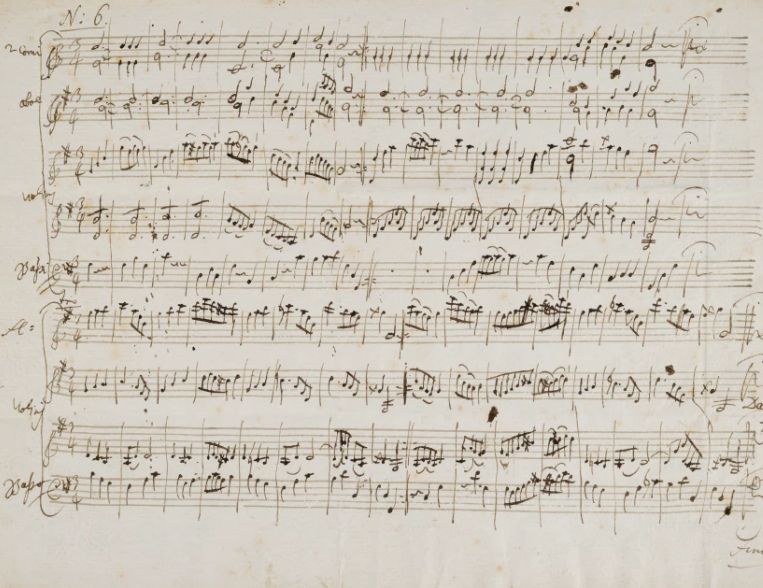 N: 6.
2 Corni
oboe
Violini
Basso
fl:
Violini
Basso